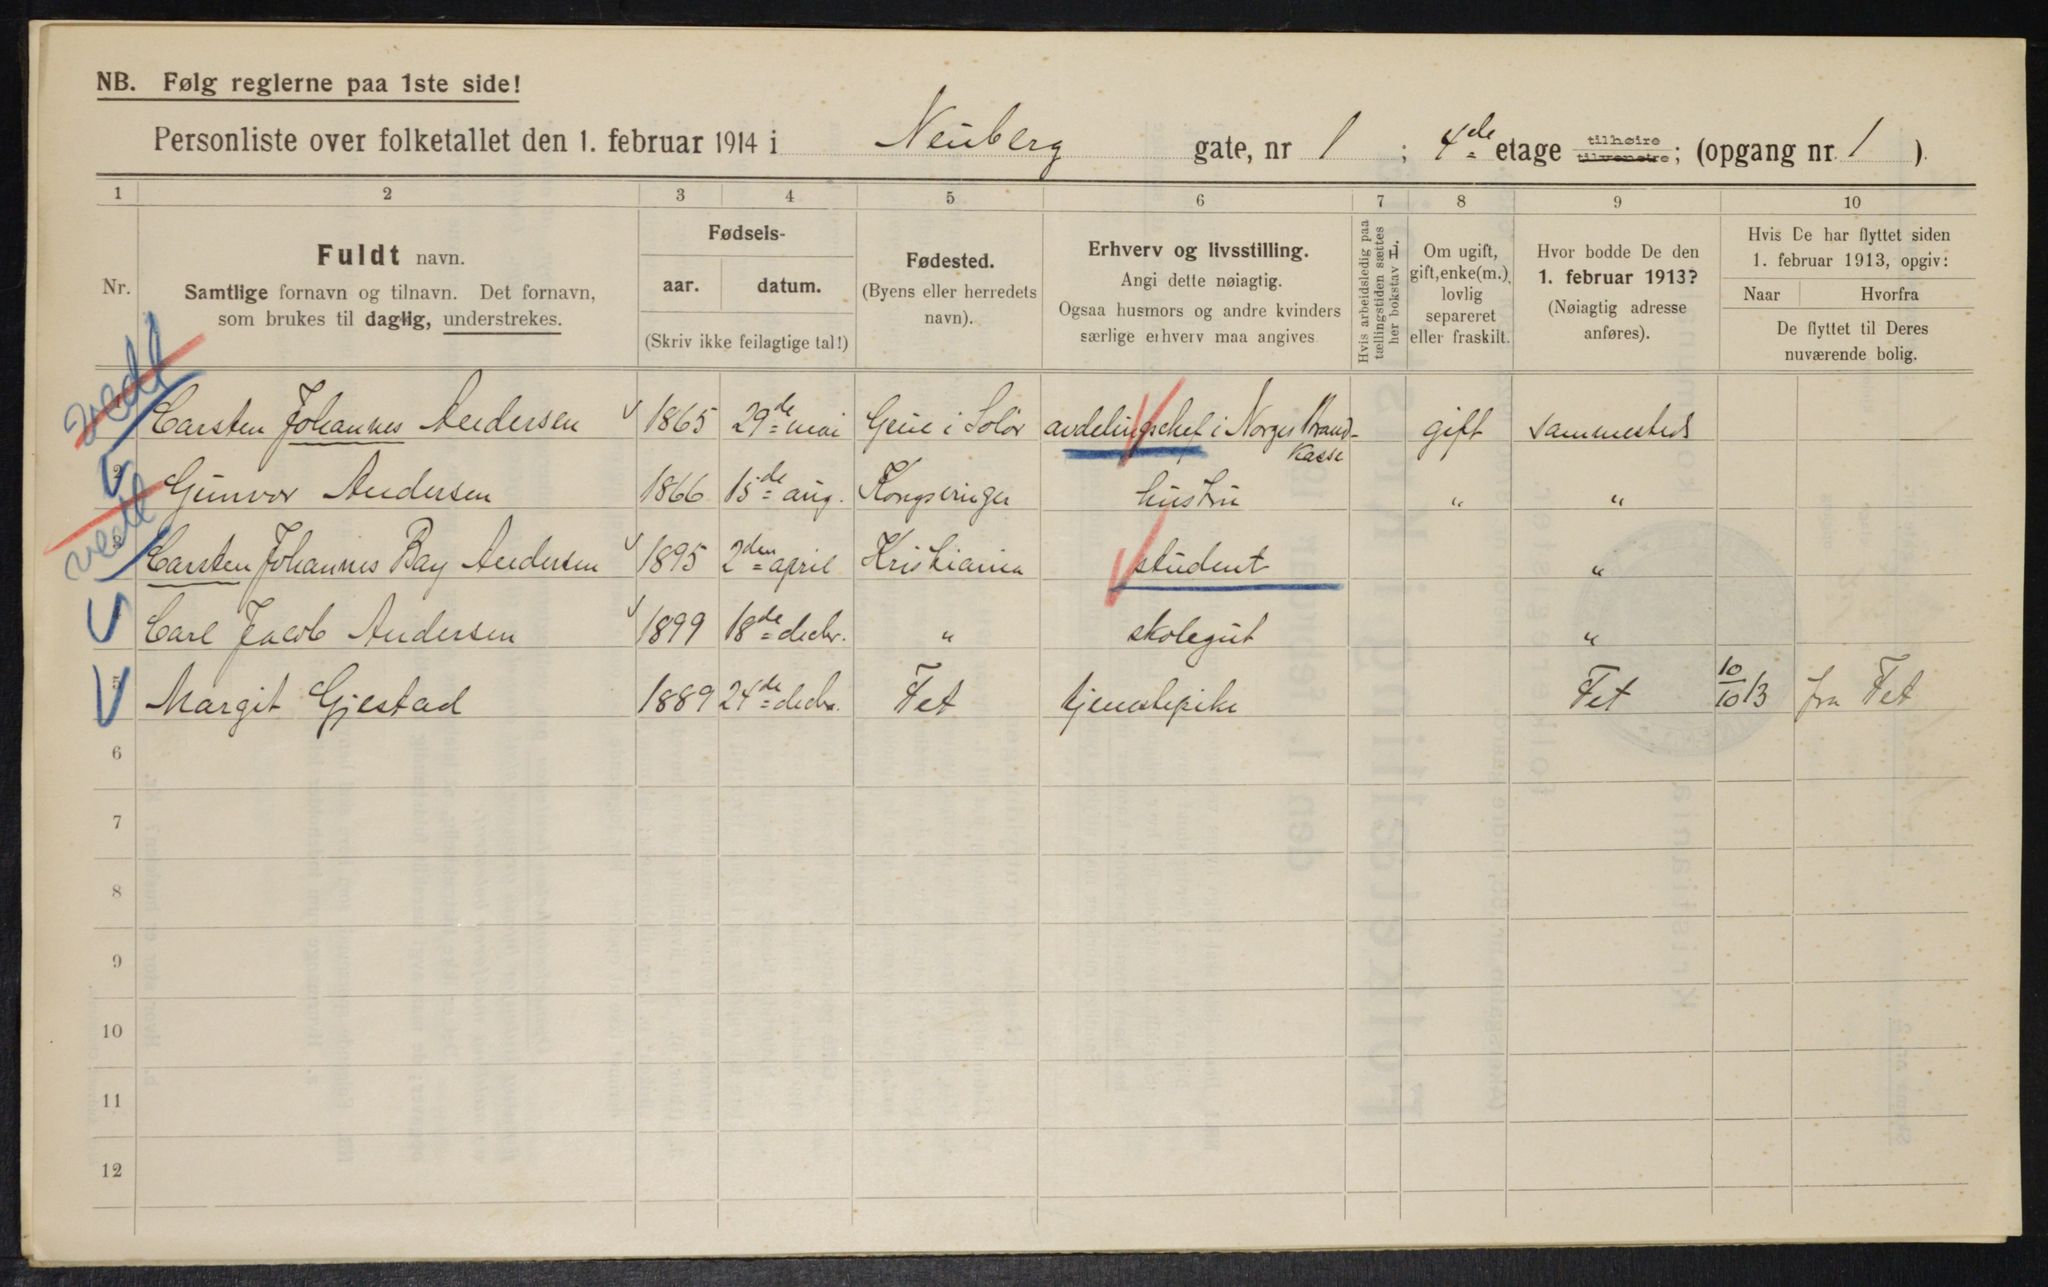 NB. Følg reglerne paa 1ste side!
Personliste over folketallet den 1. februar 1914 i Neuberg gate, nr 1 ; 4de etage tilhøire tilvenstre; (opgang nr. 1 ).
1 2 3 4 5 6 7 8 9 10
Nr.
Fuldt navn.
Samtlige fornavn og tilnavn. Det fornavn,
som brukes til daglig, understrekes.
Fødsels-
aar. datum.
(Skriv ikke feilagtige tal!)
Fødested.
(Byens eller herredets
navn).
Erhverv og livsstilling.
Angi dette nøiagtig.
Ogsaa husmors og andre kvinders
særlige erhverv maa angives
Hvis arbeidsledig paa
tællingstiden sættes
her bokstav L.
Om ugift,
gift, enke(m.),
lovlig
separeret
eller fraskilt.
Hvor bodde De den
1. februar 1913?
(Nøiagtig adresse
anføres).
Hvis De har flyttet siden
1. februar 1913, opgiv:
Naar Hvorfra
De flyttet til Deres
nuværende bolig.
vedl
Carsten Johannes Andersen 1865 29de mai Grue i Solør avdelingschef i Norges Brand- gift sammesteds
Kasse
2 Gunvor Andersen 1866 15de aug. Kongsvinger hustru " "
vedl
3 Carsten Johannes Bay Andersen 1895 2den april Kristiania student "
Carl Jacob Andersen 1899 18de decbr. " skolegut "
5 Margit Gjestad 1889 24de decbr. Fet tjenestepike Fet 10/10 13 fra Fet
6
7
8
9
10
11
12